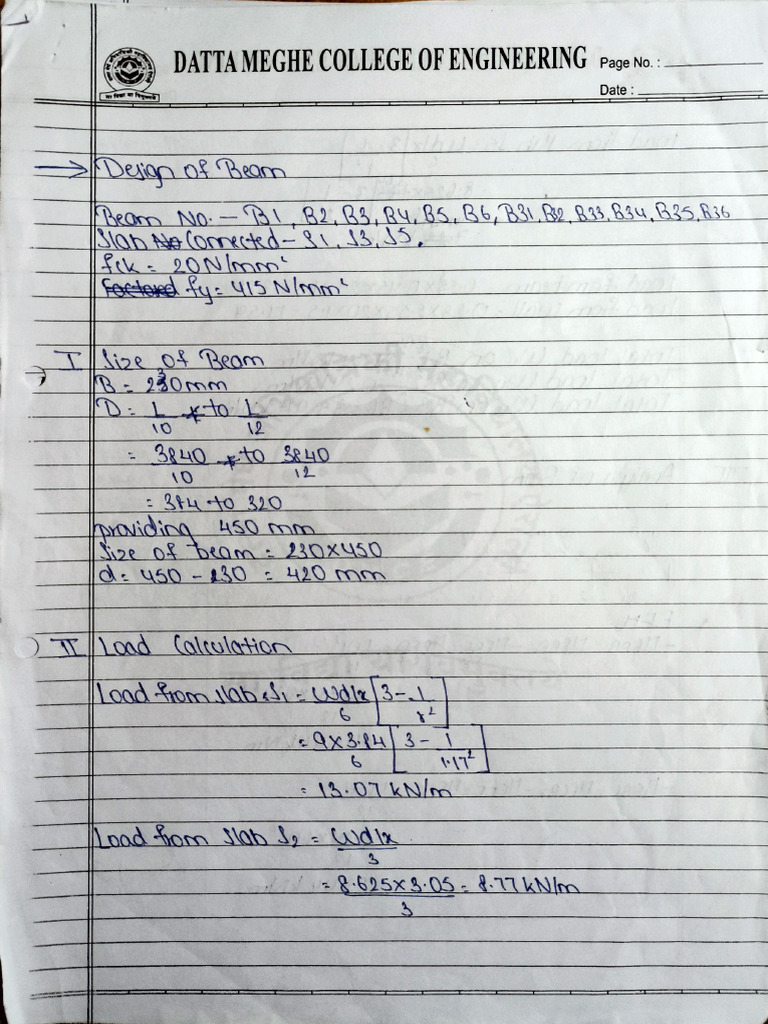 DATTA MEGHE COLLEGE OF ENGINEERING
Page No. :
Date :
→ Design of Beam
Beam No. - B1, B2, B3, B4, B5, B6, B31, B32, B33, B34, B35, B36
Slab No Connected - S1, S3, S5.
fck = 20 N/mm²
Factored fy = 415 N/mm²
I Size of Beam
B = 230mm
D = L/10 to L/12
= 3840/10 to 3840/12
= 384 to 320
providing 450 mm
Size of beam = 230×450
d = 450 - 230 = 420 mm
II Load Calculation
Load from slab S1 = Wdlx/6 [3 - 1/r²]
= 9×3.84/6 [3 - 1/1.17²]
= 13.07 kN/m
Load from Slab S2 = Wdlx/3
= 8.625×3.05/3 = 8.77 kN/m